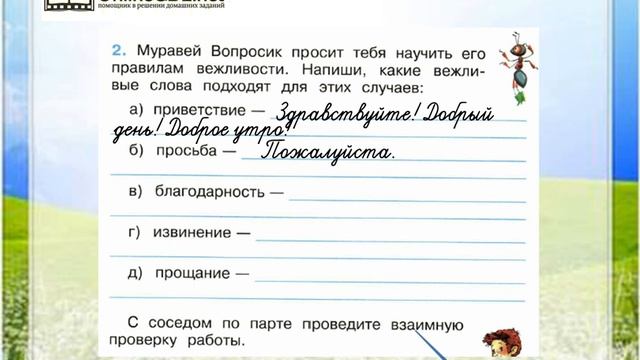 помощник в решении домашних заданий
2. Муравей Вопросик просит тебя научить его
правилам вежливости. Напиши, какие вежли-
вые слова подходят для этих случаев:
а) приветствие — Здравствуйте! Добрый
день! Доброе утро!
б) просьба — Пожалуйста.
в) благодарность —
г) извинение —
д) прощание —
С соседом по парте проведите взаимную
проверку работы.